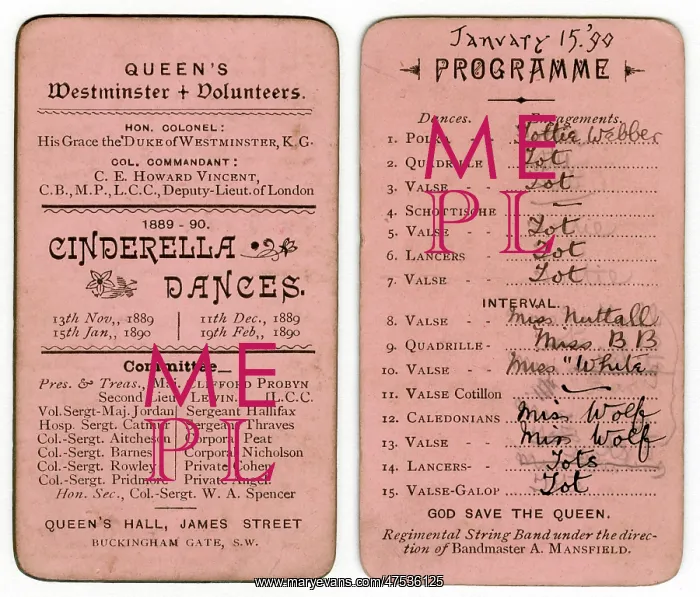 QUEEN'S
Westminster + Volunteers.
HON. COLONEL:
His Grace the DUKE of WESTMINSTER, K.G.
COL. COMMANDANT:
C. E. HOWARD VINCENT,
C.B., M.P., L.C.C., Deputy-Lieut. of London
1889 - 90.
CINDERELLA
DANCES.
13th Nov,, 1889 11th Dec., 1889
15th Jan,, 1890 19th Feb,, 1890
Committee
Pres. & Treas., Maj. CLIFFORD PROBYN
Second Lieut. L.C.C.
Vol. Sergt-Maj. Jordan Sergeant Hallifax
Hosp. Sergt. Sergeant Thraves
Col.-Sergt. Aitcheson Corporl Peat
Col.-Sergt. Barnes Corporal Nicholson
Col.-Sergt. Rowley Private Cohen
Col.-Sergt. Pridmore Private
Hon. Sec., Col.-Sergt. W. A. Spencer
QUEEN'S HALL, JAMES STREET
BUCKINGHAM GATE, S.W.
ME
PL
January 15.'90
PROGRAMME
Dances. Engagements.
1. POLKA Tottie Webber
2. QUADRILLE Tot
3. VALSE - - Tot
4. SCHOTTISCHE —
5. VALSE - - Tot
6. LANCERS - - Tot
7. VALSE - - Tot
INTERVAL.
8. VALSE - - Miss Nuttall
9. QUADRILLE - Miss B B
10. VALSE - - Miss "White
11. VALSE COTILLON —
12. CALEDONIANS Miss Wolf
13. VALSE - - Miss Wolf
14. LANCERS- - Tots
15. VALSE-GALOP Tot
GOD SAVE THE QUEEN.
Regimental String Band under the direc-
tion of BANDMASTER A. MANSFIELD.
ME
PL
www.maryevans.com/47536125